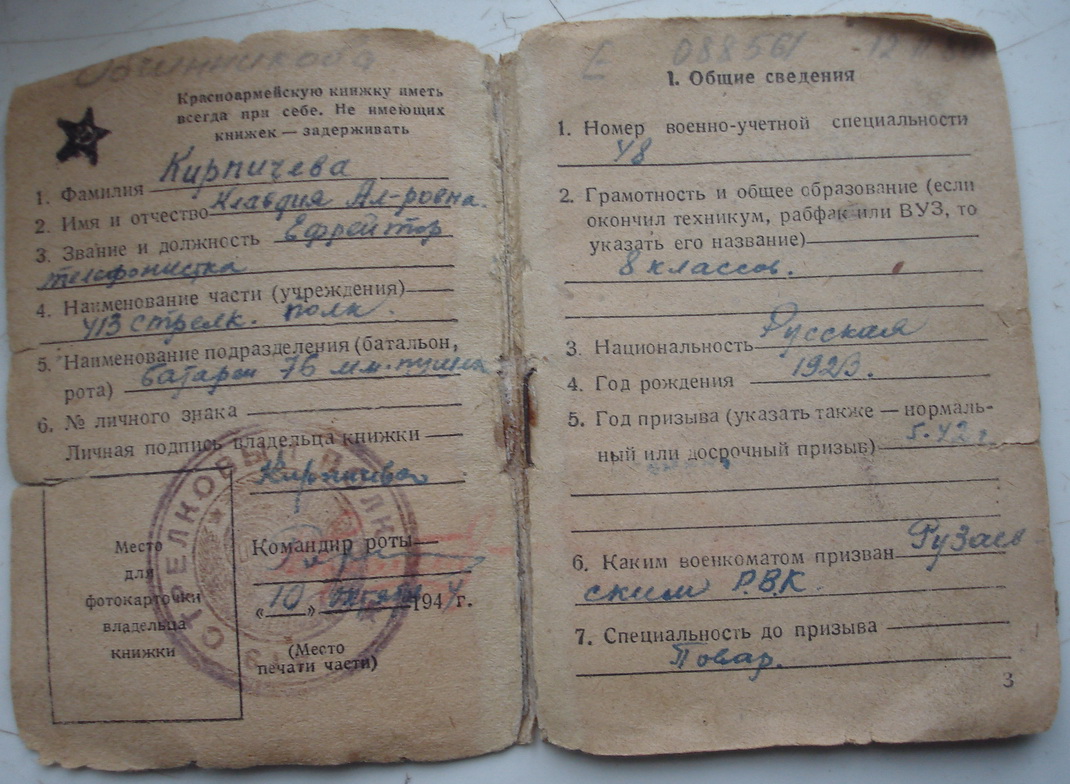 Овчинникова
Красноармейскую книжку иметь
всегда при себе. Не имеющих
книжек — задерживать
1. Фамилия Кирпичева
2. Имя и отчество Клавдия Ал-ровна.
3. Звание и должность Ефрейтор
телефонистка
4. Наименование части (учреждения)
413 стрелк. полк.
5. Наименование подразделения (батальон,
рота) батареи 76 мм. пушек
6. № личного знака
Личная подпись владельца книжки
Кирпичева
Место
для
фотокарточки
владельца
книжки
Командир роты
«10» октября 1944 г.
(Место
печати части)
СТРЕЛКОВЫЙ ПОЛК
Е 088561
1. Общие сведения
1. Номер военно-учетной специальности
48
2. Грамотность и общее образование (если
окончил техникум, рабфак или ВУЗ, то
указать его название)
8 классов.
3. Национальность Русская
4. Год рождения 1923.
5. Год призыва (указать также — нормаль-
ный или досрочный призыв) 5.42 г.
6. Каким военкоматом призван Рузаев
ским Р.В.К.
7. Специальность до призыва
Повар.
3